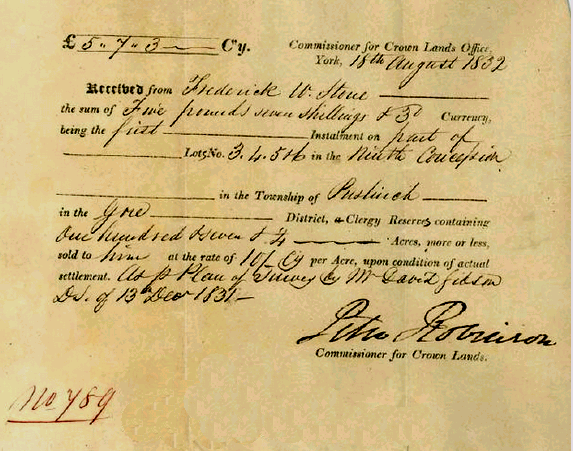 £ 5. 7. 3 Cy. Commissioner for Crown Lands Office,
York, 18th August 1832
Received from Frederick W. Stone
the sum of Five pounds seven shillings & 3d Currency,
being the first Instalment on part of
Lots No. 3. 4. 5 & 6 in the Ninth Concession
in the Township of Puslinch
in the Gore District, a Clergy Reserves containing
One hundred & seven & ¼ Acres, more or less,
sold to him at the rate of 10/ Cy per Acre, upon condition of actual
settlement. As p Plan of Survey by Mr David Gibson
D.S. of 13th Decr 1831
Peter Robinson
Commissioner for Crown Lands.
No 789